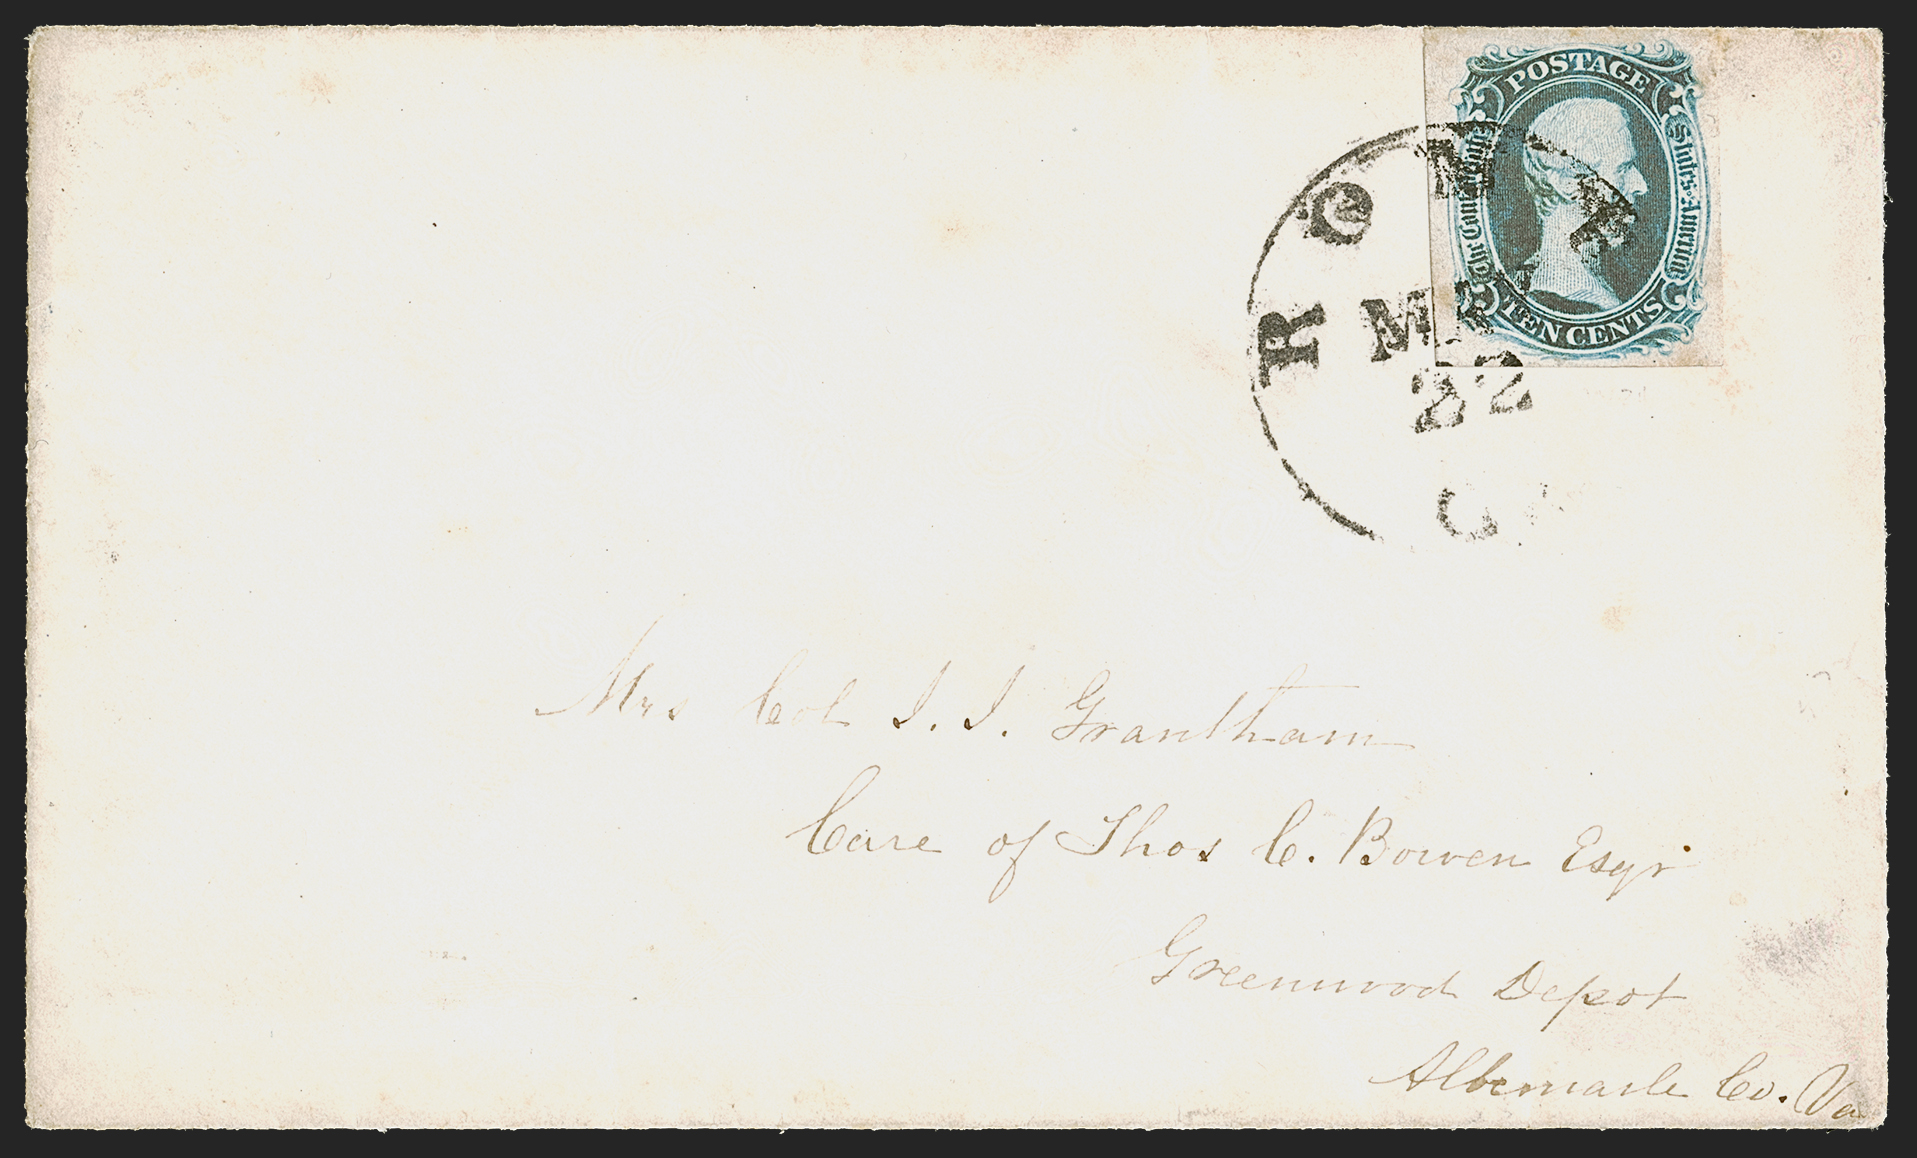 POSTAGE
The Confederate States of America
TEN CENTS
ROME
MAY
22
Mrs Col I. I. Grantham
Care of Thos C. Bowen Esqr
Greenwood Depot
Albemarle Co. Va